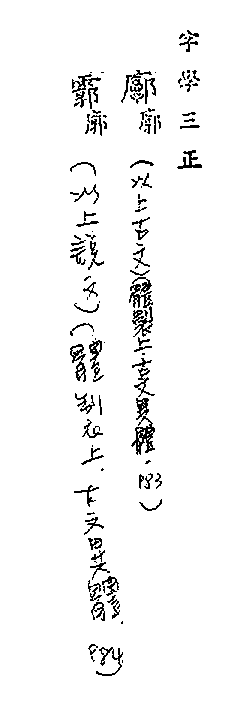 字學三正
廓廓(以上古文)(體製上.古文異體.P83)
霩廓(以上說文)(體制上.古文異體.P84)